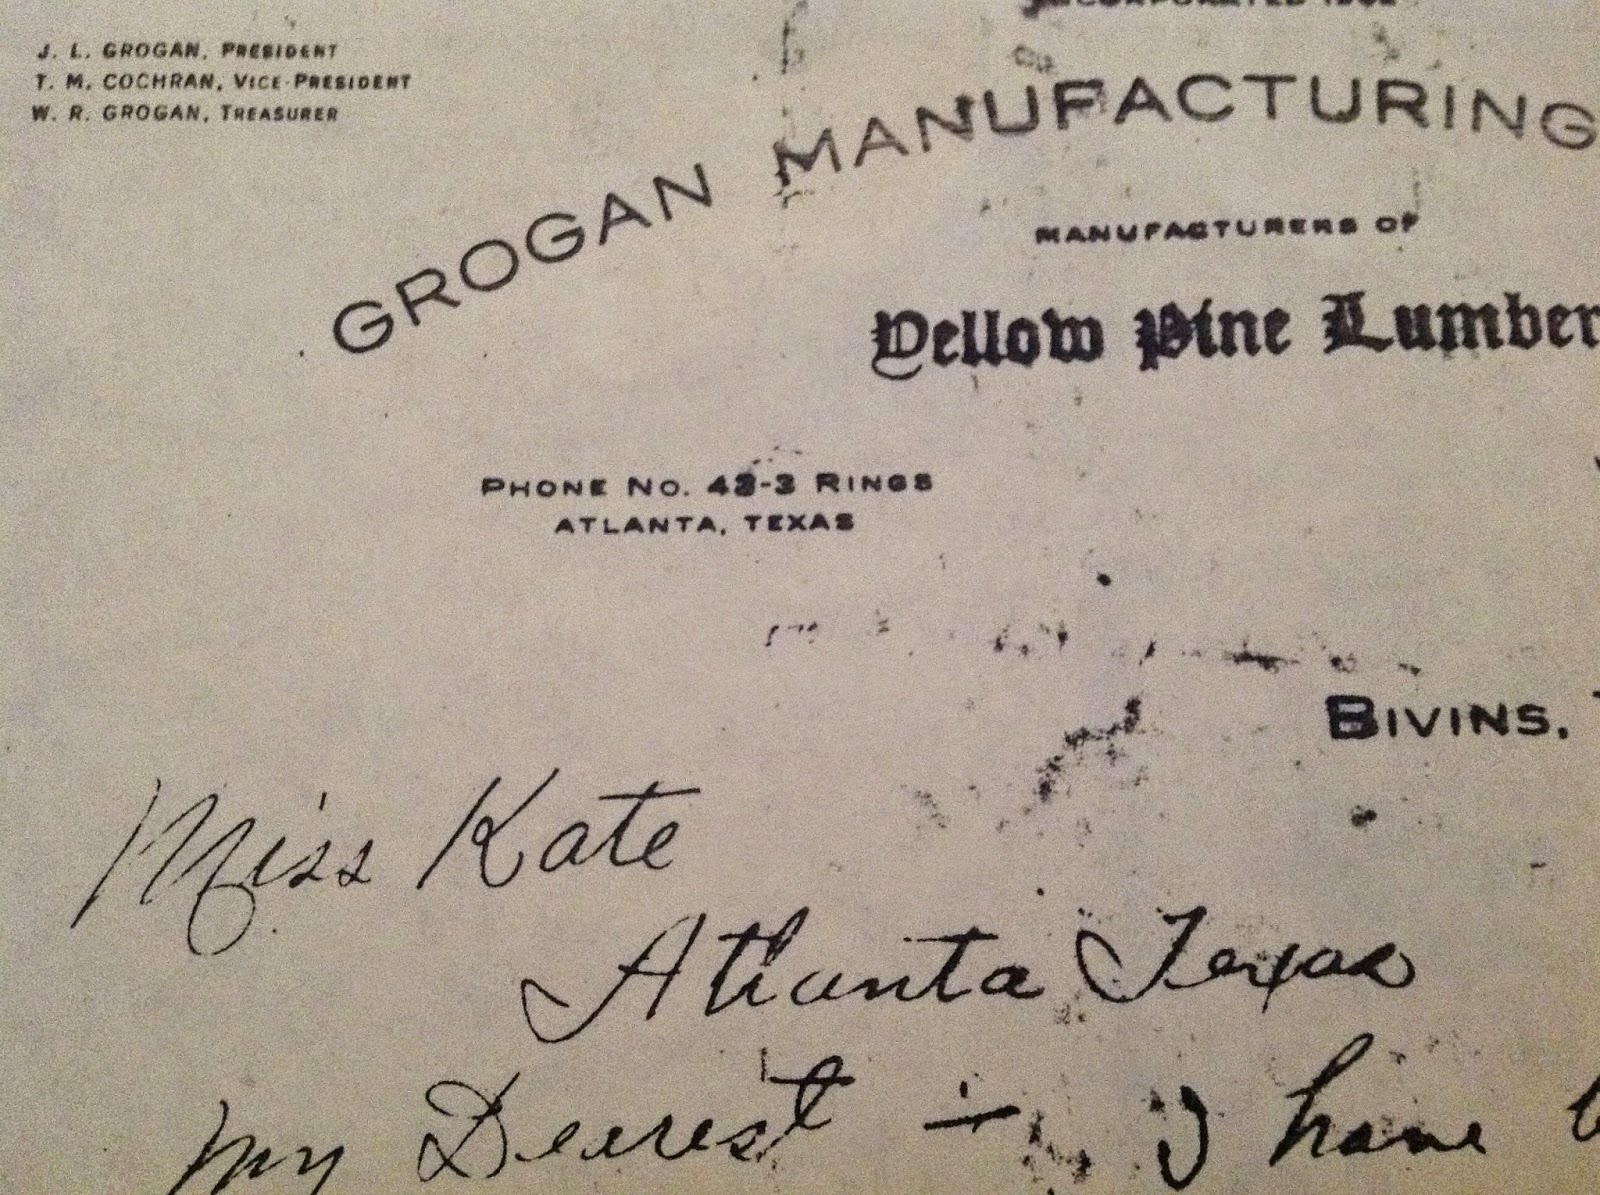 INCORPORATED
J. L. GROGAN, PRESIDENT
T. M. COCHRAN, VICE-PRESIDENT
W. R. GROGAN, TREASURER
GROGAN MANUFACTURING
MANUFACTURERS OF
Yellow Pine Lumber
PHONE NO. 43-3 RINGS
ATLANTA, TEXAS
BIVINS,
Miss Kate
Atlanta Texas
My Dearest — I have